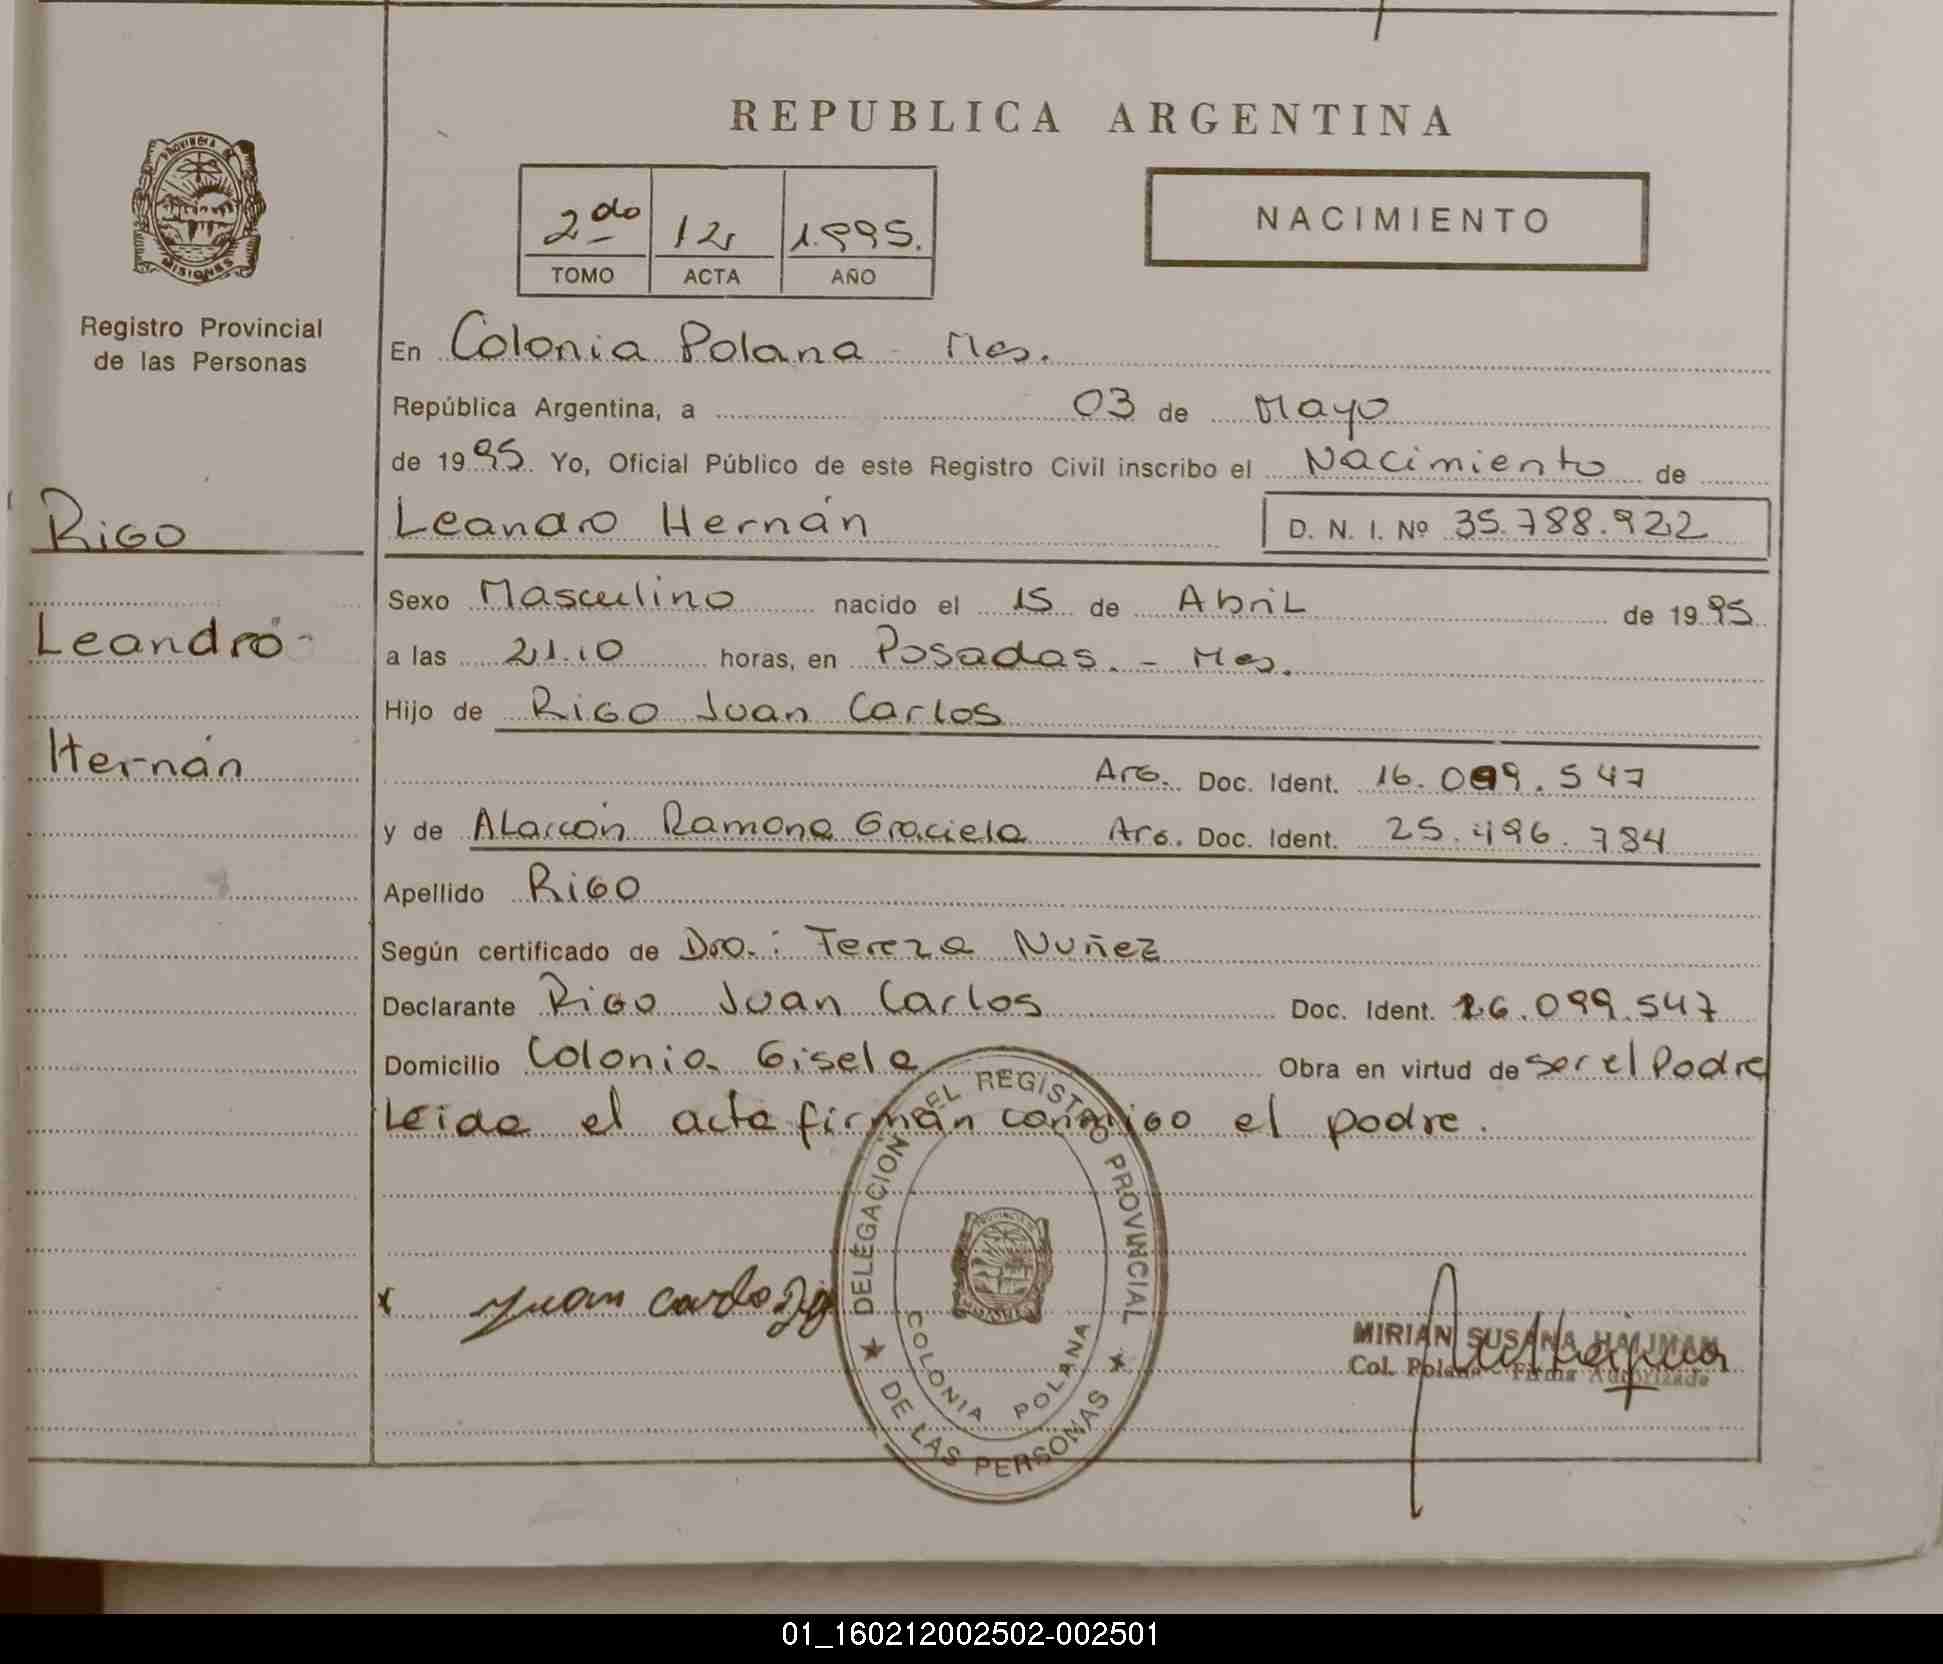 REPUBLICA ARGENTINA
PROVINCIA DE
MISIONES
Registro Provincial
de las Personas
2do 12 1.995.
TOMO ACTA AÑO
NACIMIENTO
En Colonia Polana - Mes.
República Argentina, a 03 de Mayo
de 1995. Yo, Oficial Público de este Registro Civil inscribo el Nacimiento de
Rigo
Leandro Hernán D. N. I. Nº 35.788.922
Sexo Masculino nacido el 15 de Abril de 1995
Leandro
a las 21.10 horas, en Posadas. - Mes.
Hijo de Rigo Juan Carlos
Hernán
Arg. Doc. Ident. 16.099.547
y de Alarcón Ramona Graciela Arg. Doc. Ident. 25.496.784
Apellido Rigo
Según certificado de Dra.: Tereza Nuñez
Declarante Rigo Juan Carlos Doc. Ident. 16.099.547
Domicilio Colonia Gisela Obra en virtud de ser el Padre
Leida el acta firman conmigo el padre.
DELEGACION DEL REGISTRO PROVINCIAL
DE LAS PERSONAS
COLONIA POLANA
x Juan Carlos
MIRIAN SUSANA
Col. Polana - Firma Autorizada
01_160212002502-002501